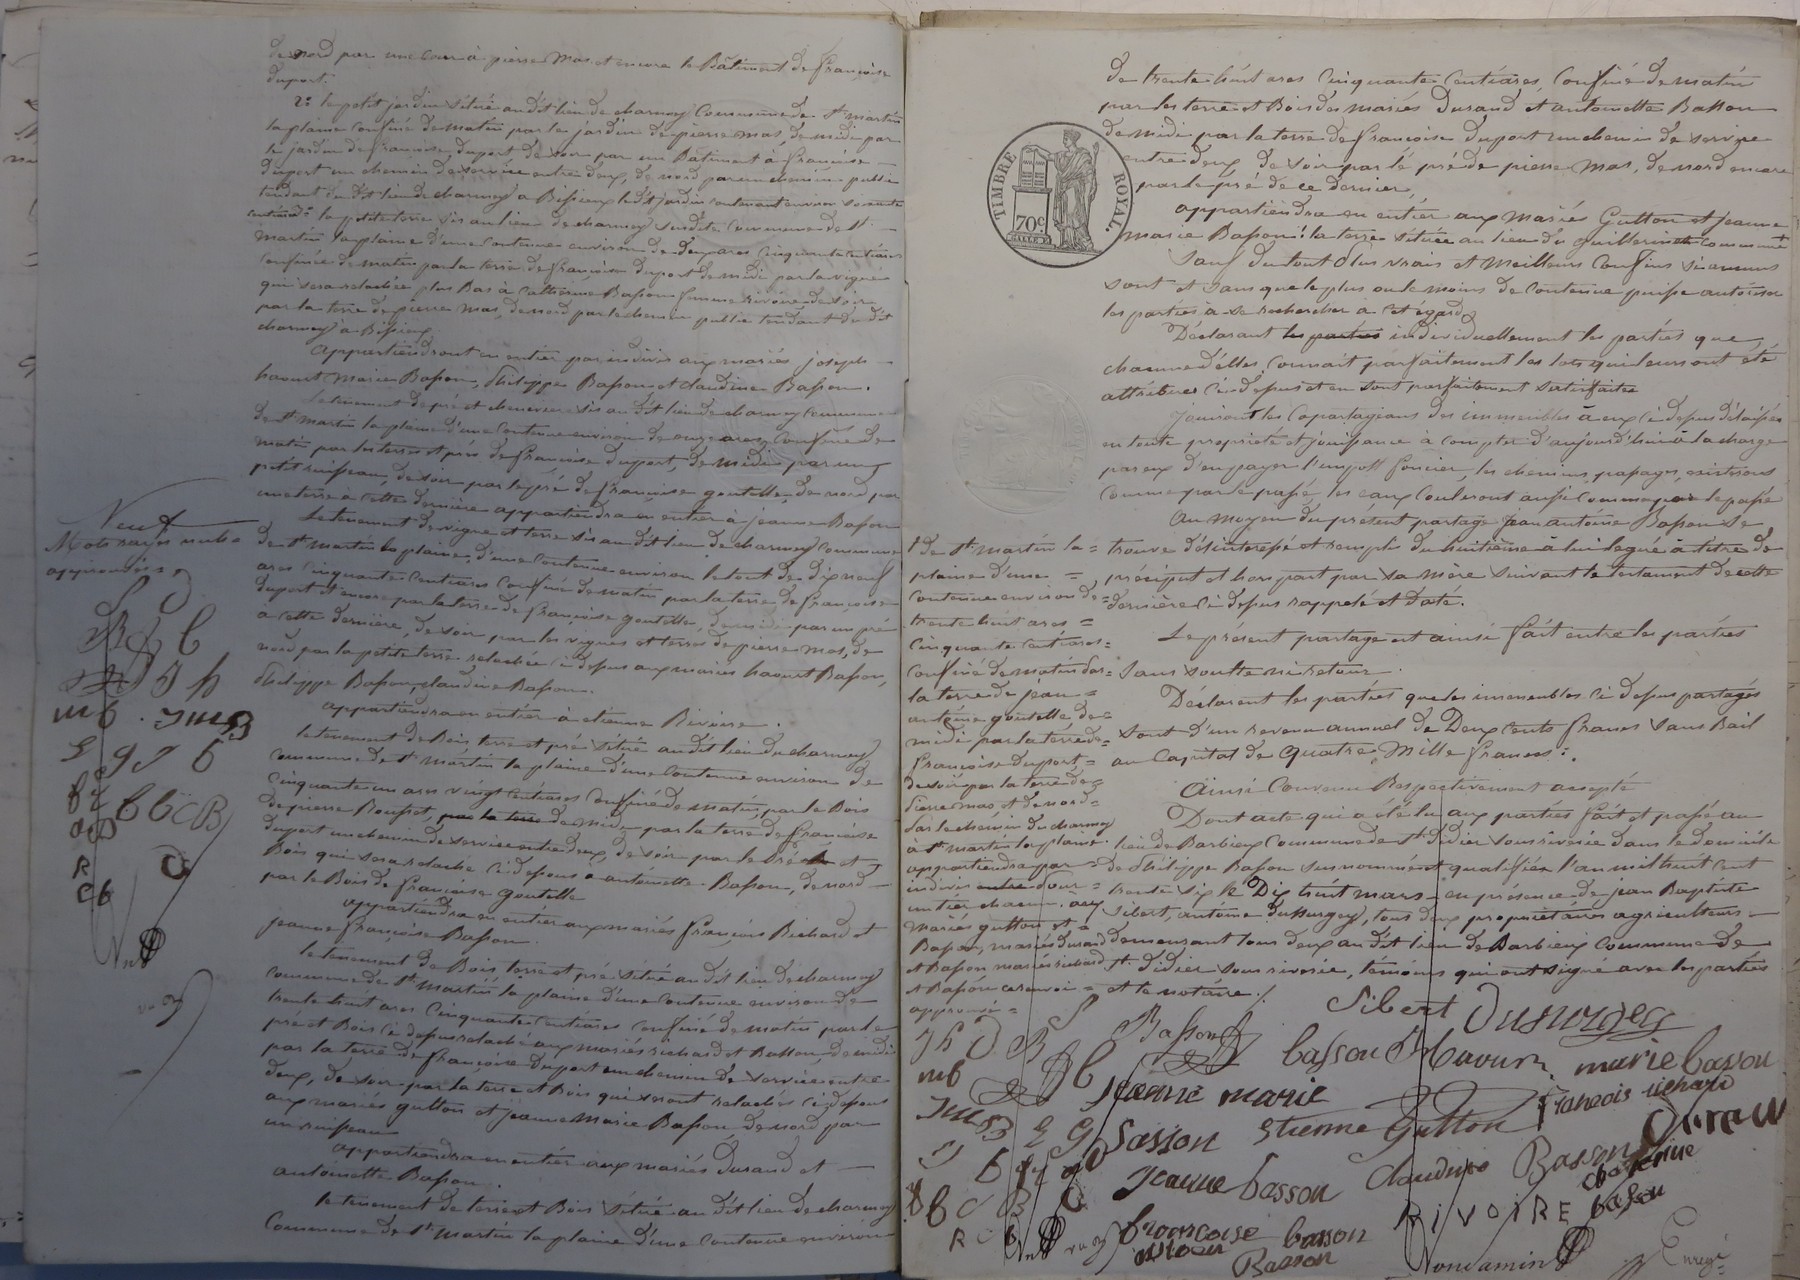 de nord par une cour à pierre Mas et encore le Bâtiment de françoise
duport.
2° le petit jardin situé au dit lieu de charmoy Commune de St martin
la plaine confiné de matin par le jardin de pierre mas, de midi par
le jardin de françoise duport de soir par un Bâtiment à françoise
duport un chemin de service entre deux, de nord par un chemin public
tendant du dit lieu de charmoy a Bissieux le dit jardin contenant environ soixante
centiares la petite terre sis au lieu de charmoy susdite commune de St
martin la plaine d'une contenue environ de deux ares cinquante centiares
confinée de matin par la terre de françoise duport de midi par la vigne
qui sera relachée plus Bas à Catherine Basson femme rivoire de soir
par la terre de pierre mas, de nord par le chemin public tendant du dit
charmoy à Bissieux.
appartiendront en entier par indivis aux mariés joseph
havourt Marie Basson, Philippe Basson et claudine Basson.
Le tènement de pré et chenevier sis au dit lieu de charmoy commune
de St martin la plaine d'une contenue environ de onze ares, confiné de
matin par les terres et prés de françoise duport, de midi par un
petit ruisseau, de soir par le pré de françoise goutelle, de nord par
une terre à cette dernière appartiendra en entier à jeanne Basson
Le tènement de vigne et terre sis au dit lieu de charmoy commune
de St martin la plaine, d'une contenue environ le tout de dix neuf
ares cinquante centiares confiné de matin par la terre de françoise
duport et encore par la terre de françoise goutelle, de midi par un pré
à cette dernière, de soir par les vignes et terres de pierre mas, de
nord par la petite terre relachée ci dessus aux mariés havourt Basson,
Philippe Basson, claudine Basson.
appartiendra en entier à etienne Rivoire.
le tènement de Bois, terre et pré situé au dit lieu du charmoy
commune de St martin la plaine d'une contenue environ de
cinquante un ares vingt centiares confiné de matin, par le Bois
de pierre Rousset, par la terre de midi par la terre de françoise
duport un chemin de service entre deux, de soir par le Pré et
Bois qui sera relaché ci dessous à antoinette Basson, de nord
par le Bois de françoise goutelle
appartiendra en entier aux mariés françois Richard et
jeanne françoise Basson.
le tènement de Bois, terre et pré situé au dit lieu de charmoy
commune de St martin la plaine d'une contenue environ de
trente huit ares cinquante centiares confiné de matin par le
pré et Bois ci dessus relaché aux mariés richard et Basson, de midi
par la terre de françoise duport un chemin de service entre
deux, de soir par la terre et Bois qui seront relachés ci dessous
aux mariés gutton et jeanne Marie Basson, de nord par
un ruisseau
appartiendra en entier aux mariés Durand et
antoinette Basson.
le tènement de terre et Bois situé au dit lieu de charmoy
Commune de St martin la plaine d'une contenue environ
Neuf
Mots rayés nuls
approuvés
mb. JMB
TIMBRE ROYAL.
70c
de trente huit ares Cinquante Centiares, Confiné de matin
par les terre et Bois des mariés Durand et antoinette Basson
de midi par la terre de françoise duport un chemin de service
entre deux, de soir par le pré de pierre Mas, de nord encore
par le pré de ce dernier,
appartiendra en entier aux Mariés Gutton et Jeanne
marie Basson: la terre située au lieu du guillermet commune
Sauf du tout plus vrais et Meilleurs Confins si aucuns
sont et sans que le plus ou le moins de Contenue puisse autoriser
les parties à se rechercher à cet égard
Déclarant les parties individuellement les parties que
chacune d'elles connait parfaitement les lots qui leurs ont été
attribués ci dessus et en sont parfaitement satisfaites
Jouiront les Copartageans des immeubles à eux ci dessus délaissés
en toute propriété et jouissance à compter d'aujourd'hui à la charge
par eux d'en payer l'impôt foncier, les chemins, passages, existerons
comme par le passé, les eaux Couleront aussi comme par le passé
Au moyen du présent partage Jean antoine Basson se
trouve désinteressé et rempli du huitième à lui legué à titre de
préciput et hors part par sa mère suivant le testament de cette
dernière ci dessus rappelé et Daté.
Le présent partage est ainsi fait entre les parties
Sans soulte ni retour.
Déclarent les parties que les immeubles ci dessus partagés
sont d'un revenu annuel de Deux cents francs Sans Bail
au Capital de Quatre Mille francs.
Ainsi Convenu Respectivement accepté
Dont acte qui a été lu aux parties fait et passé au
lieu de Barbieux Commune de St didier sous riverie dans le domicile
de Philippe Basson susnommé et qualifié l'an mil huit cent
trente six le Dix huit mars en présence de Jean Baptiste
Sibert, antoine dussurgey, tous deux propriétaires agriculteurs
demeurant tous deux au dit lieu de Barbieux commune de
St didier sous riverie, témoins qui ont signé avec les parties
et le notaire./.
de St martin la
plaine d'une
Contenue environ de
trente huit ares
cinquante centiares
confiné de matin par
la terre de jean
antoine goutelle, de
midi par la terre de
françoise duport
de soir par la terre de
Pierre mas et de nord
par le chemin du charmoy
à St martin la plaine
appartiendra par
indivis entre d'eux
un tiers chacun, aux
mariés gutton et
Basson, mariés durand
et Basson, mariés richard
et Basson ce renvoi
approuvé
Sibert Dusurgey
Basson basson Ph havour marie basson
Jeanne marie
basson Etienne Gutton françois richard
Durand
Jeanne basson Claudine Basson catherine
françoise basson RIVOIRE basson
Basson
Enregé